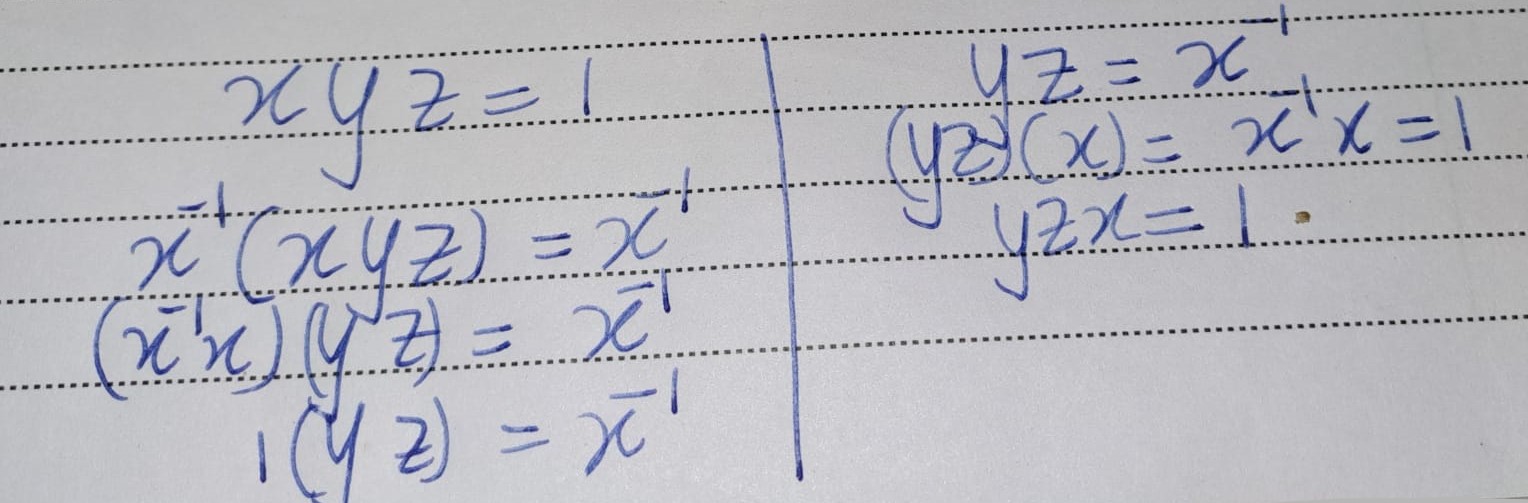 xyz = 1
x⁻¹(xyz) = x⁻¹
(x⁻¹x)(yz) = x⁻¹
1(yz) = x⁻¹
yz = x⁻¹
(yz)(x) = x⁻¹x = 1
yzx = 1.